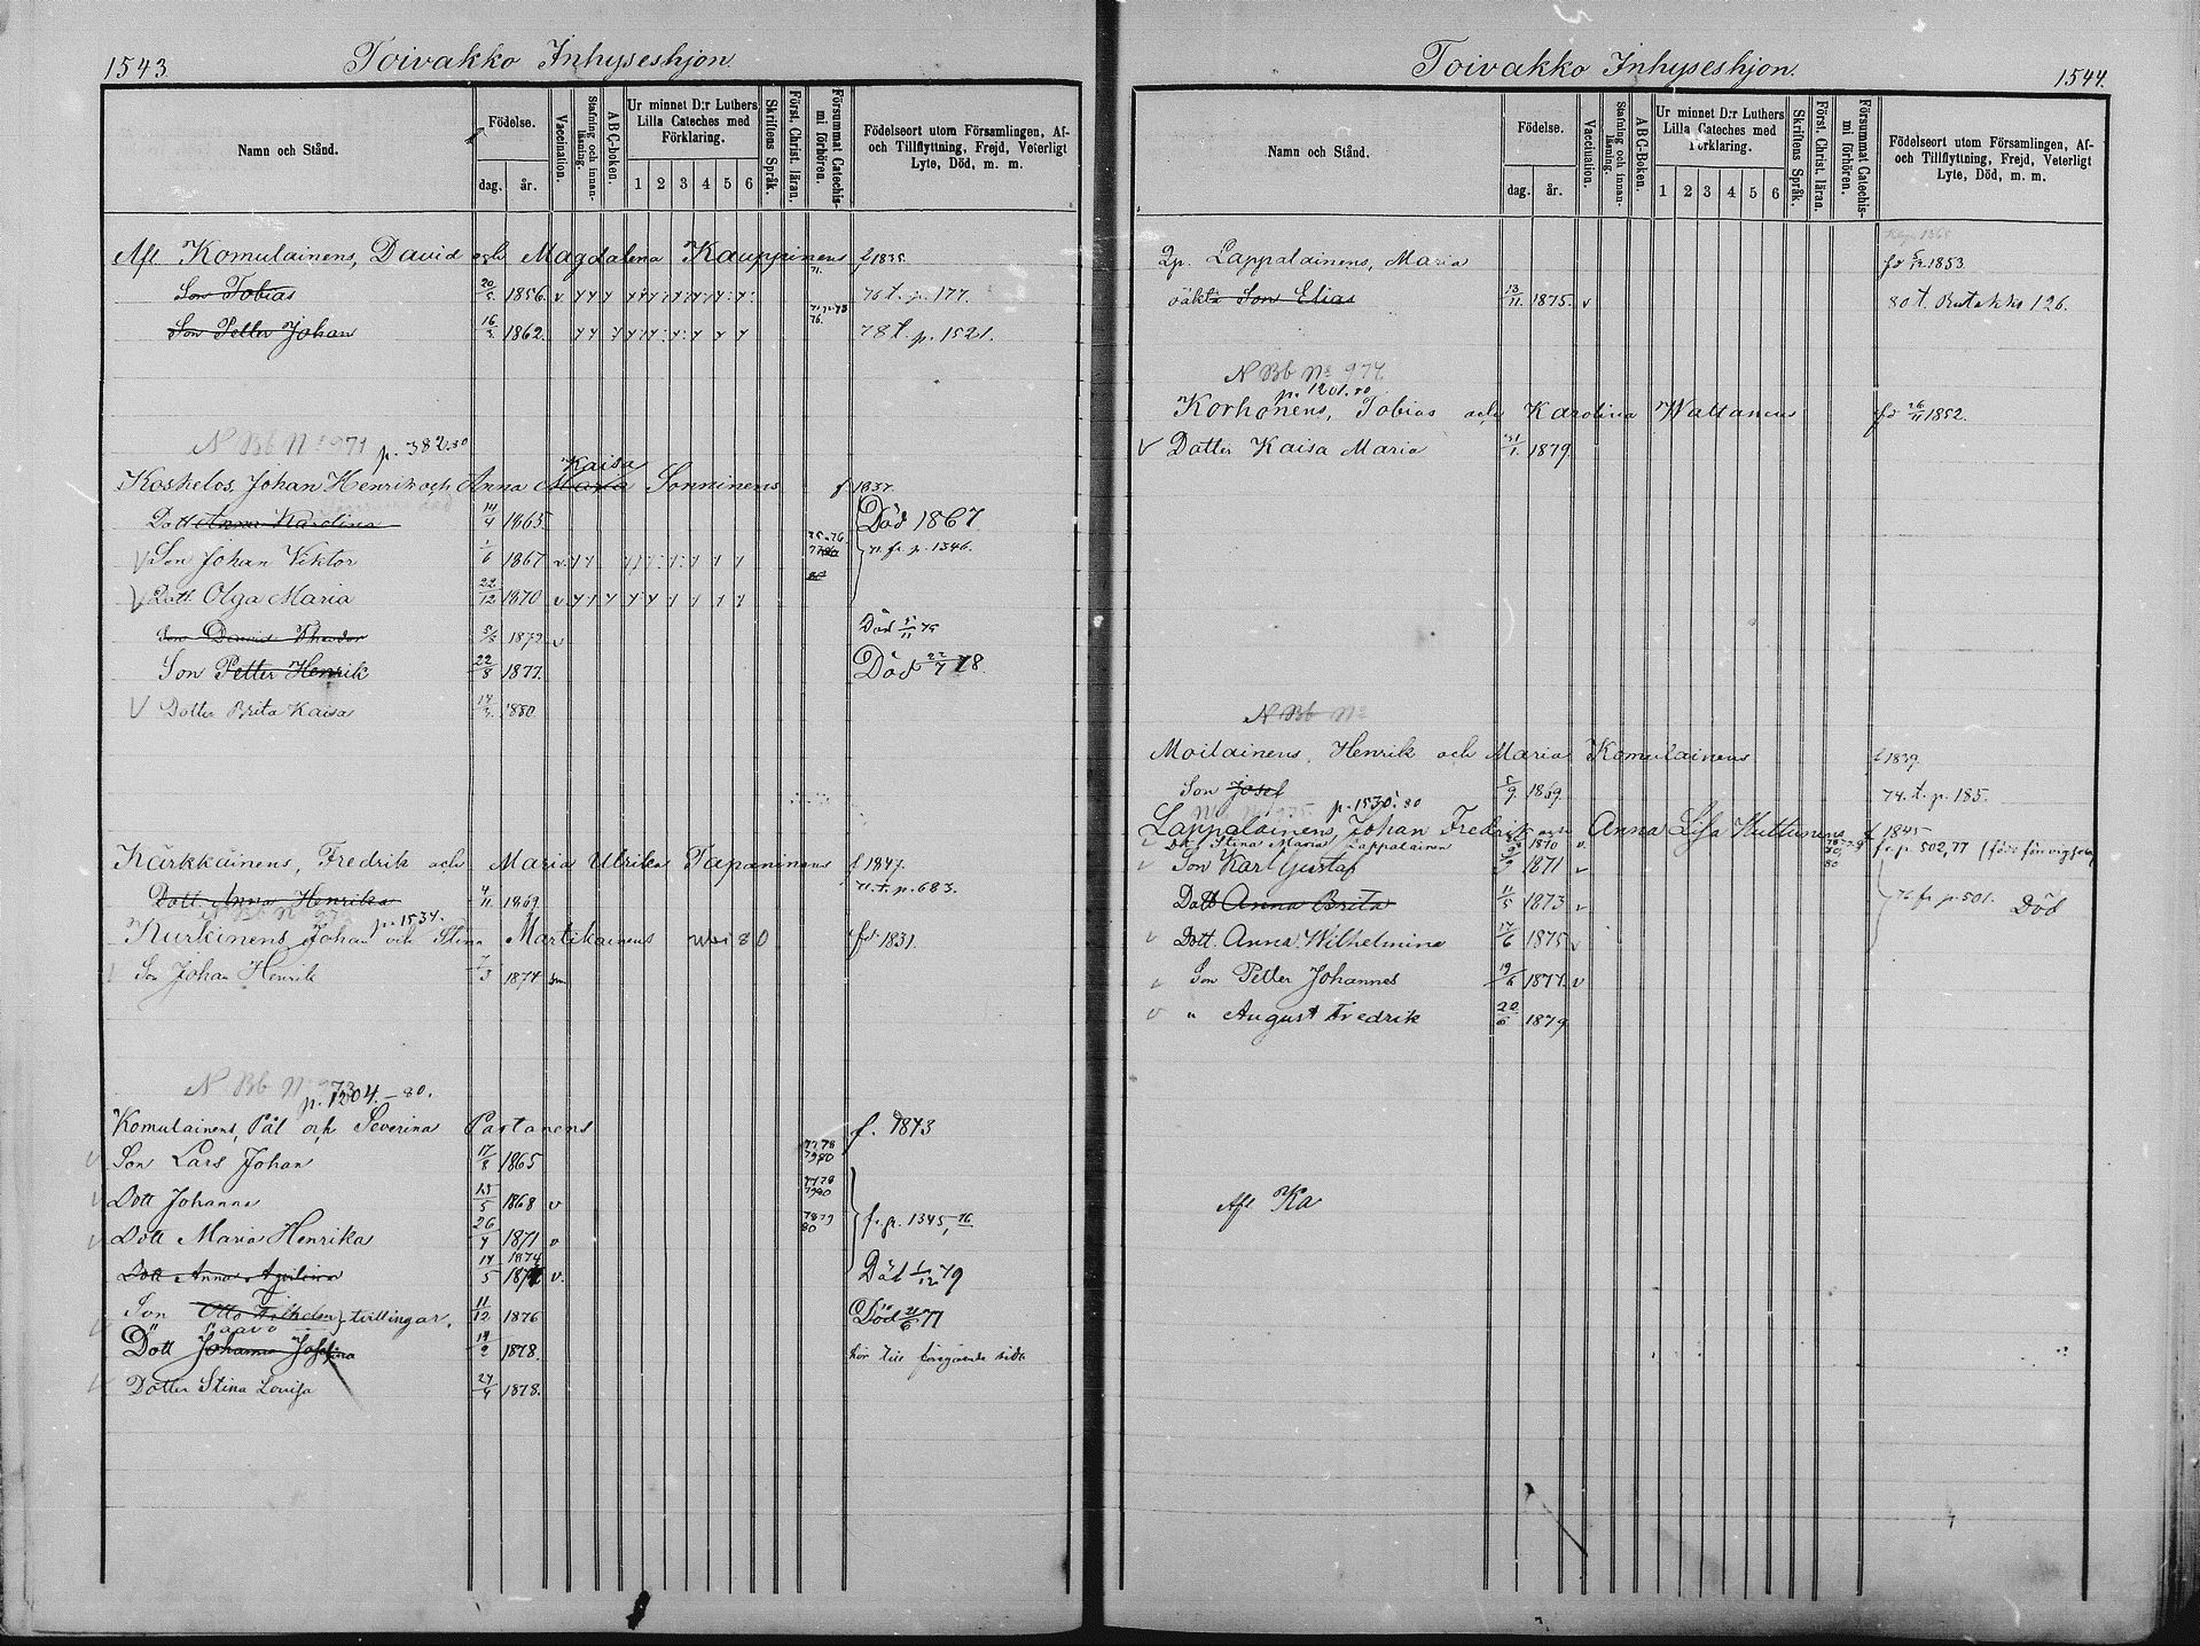 1543.
Toivakko Inhyseshjon.
Namn och Stånd.
Födelse.
dag. år.
Vaccination.
Stafning och innan-läsning.
ABC-boken.
Ur minnet D:r Luthers Lilla Cateches med Förklaring.
1 2 3 4 5 6
Skriftens Språk.
Först. Christ. läran.
Försummat Catechis-mi förhören.
Födelseort utom Församlingen, Af- och Tillflyttning, Frejd, Veterligt Lyte, Död, m. m.
Afl Komulainens, David och Magdalena Kauppinens f 1835
Son Tobias 20/5 1856 v 76 t. p. 177.
Son Petter Johan 16/3 1862 78 t. p. 1521.
N Bb No 971 p. 382.80
Kaisa
Koskelos, Johan Henrik och Anna Maria Sonninens f 1837.
Dott Anna Karolina 14/4 1865 Död 1867
Son Johan Viktor 1/6 1867 v 71 fr p. 1346.
Dott Olga Maria 22/12 1870 v
Son 1872 v Död
Son Petter Henrik 22/8 1877. Död 22/7 78.
Dotter Brita Kaisa 14/3 1880
Kärkkäinens, Fredrik och Maria Ulrika Tapaninens f 1847.
Dott Anna Henrika 4/11 1869 71. t. p. 683.
p. 1534.
Kurkinens Johan och Stina Martikainens 80 fd 1831.
Son Johan Henrik 7/3 1874
N Bb No
p. 1204. - 80.
Komulainens, Pål och Severina Partanens f. 1843
Son Lars Johan 17/8 1865
Dott Johanna 1868 v
Dott Maria Henrika 26/4 1871 v fr p. 1345, 76
1874
Dott Anna 14/5 v. Död 1/12 79
Son Otto Wilhelm } tvillingar. 11/12 1876 Död 77
" Paavo
Dott Johanna Josefina 14/2 1878. hör till föregående sida
Dotter Stina Lovisa 24/4 1878.
Toivakko Inhyseshjon.
1544.
Namn och Stånd.
Födelse.
dag. år.
Vaccination.
Stafning och innan-läsning.
ABC-Boken.
Ur minnet D:r Luthers Lilla Cateches med Förklaring.
1 2 3 4 5 6
Skriftens Språk.
Först. Christ. läran.
Försummat Catechis-mi förhören.
Födelseort utom Församlingen, Af- och Tillflyttning, Frejd, Veterligt Lyte, Död, m. m.
Qp. Lappalainens, Maria fd 1853
oäkta Son Elias 13/11 1875. v 80 t. Rutakko 126.
N Bb No 974
p. 1201.80
Korhonens, Tobias och Karolina Waltanens fd 26/11 1852.
Dotter Kaisa Maria 31/1 1879
N Bb No
Moilainens, Henrik och Maria Komulainens f 1839
Son Josef 5/9 1869 74. t. p. 185.
p. 1530. 80
Lappalainens, Johan Fredrik och Anna Lisa Huttunens f 1845
Dtr Stina Maria Lappalainen 1870 v. fr p. 502, 77
Son Karl Gustaf 1871 v
Dott Anna Brita 11/5 1873 v 76 fr p. 501. Död
Dott. Anna Wilhelmina 17/6 1875 v
Son Petter Johannes 19/6 1877. v
" August Fredrik 20/6 1879
Afl Ka